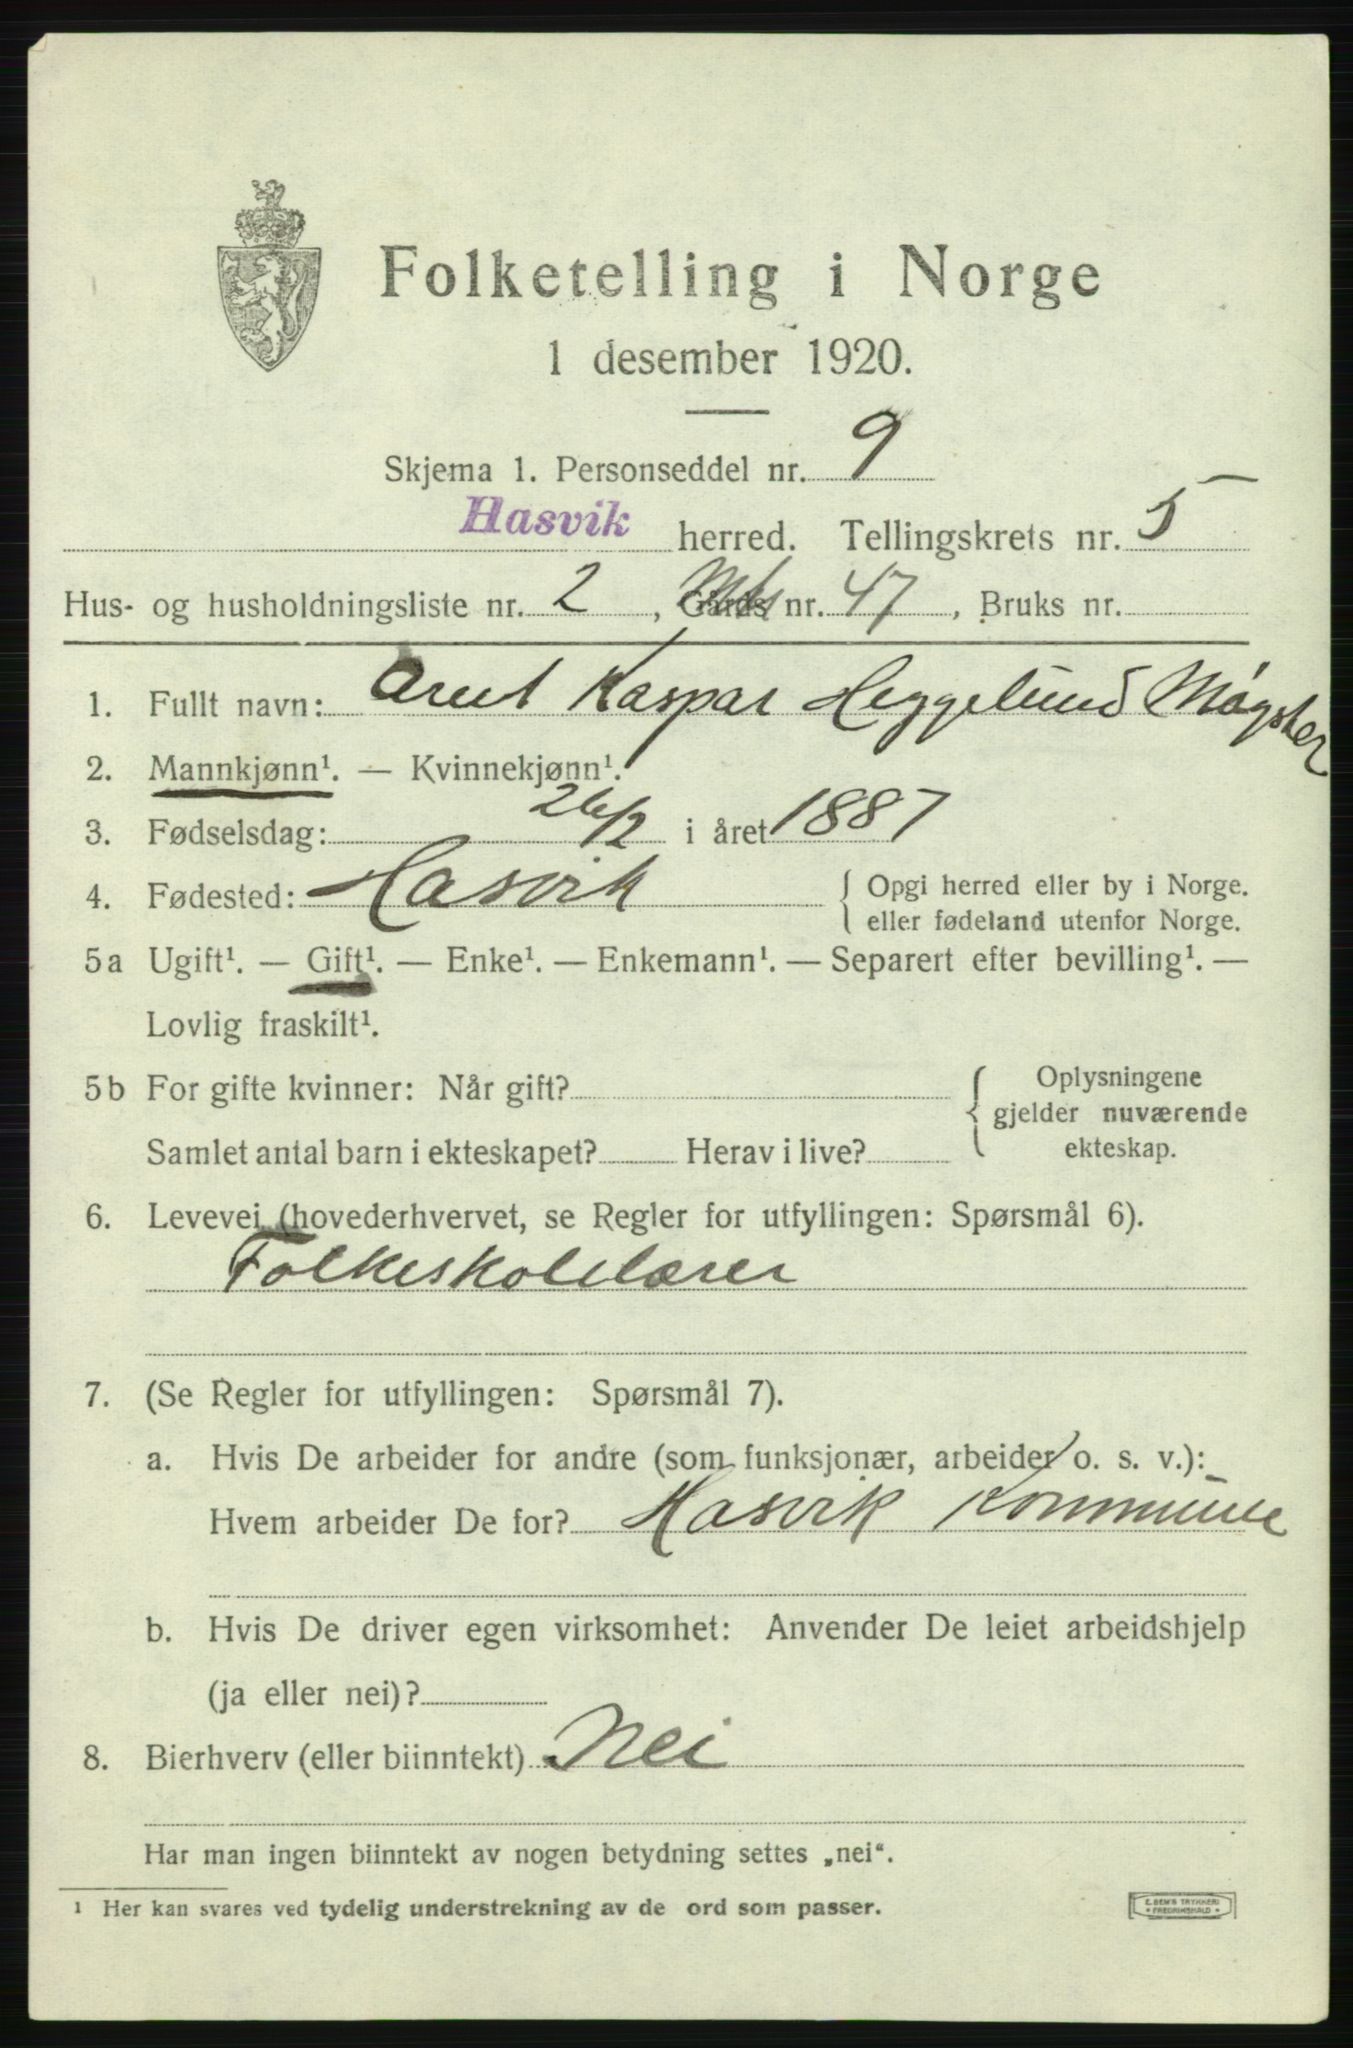 Folketelling i Norge
1 desember 1920.
Skjema 1. Personseddel nr. 9
Hasvik herred. Tellingskrets nr. 5
Hus- og husholdningsliste nr. 2, Gårds nr. 47, Bruks nr.
1. Fullt navn: Arent Kaspar Heggelund Møgster
2. Mannkjønn¹. — Kvinnekjønn¹.
3. Fødselsdag: 26/2 i året 1887
4. Fødested: Hasvik { Opgi herred eller by i Norge.
eller fødeland utenfor Norge.
5a Ugift¹. — Gift¹. — Enke¹. — Enkemann¹. — Separert efter bevilling¹. —
Lovlig fraskilt¹.
5b For gifte kvinner: Når gift? { Oplysningene
gjelder nuværende
Samlet antal barn i ekteskapet? Herav i live? ekteskap.
6. Levevei (hovederhvervet, se Regler for utfyllingen: Spørsmål 6).
Folkeskolelærer
7. (Se Regler for utfyllingen: Spørsmål 7).
a. Hvis De arbeider for andre (som funksjonær, arbeider o. s. v.):
Hvem arbeider De for? Hasvik Kommune
b. Hvis De driver egen virksomhet: Anvender De leiet arbeidshjelp
(ja eller nei)?
8. Bierhverv (eller biinntekt) Nei
Har man ingen biinntekt av nogen betydning settes „nei“.
¹ Her kan svares ved tydelig understrekning av de ord som passer.
E. SEM'S TRYKKERI
• FREDRIKSHALD •